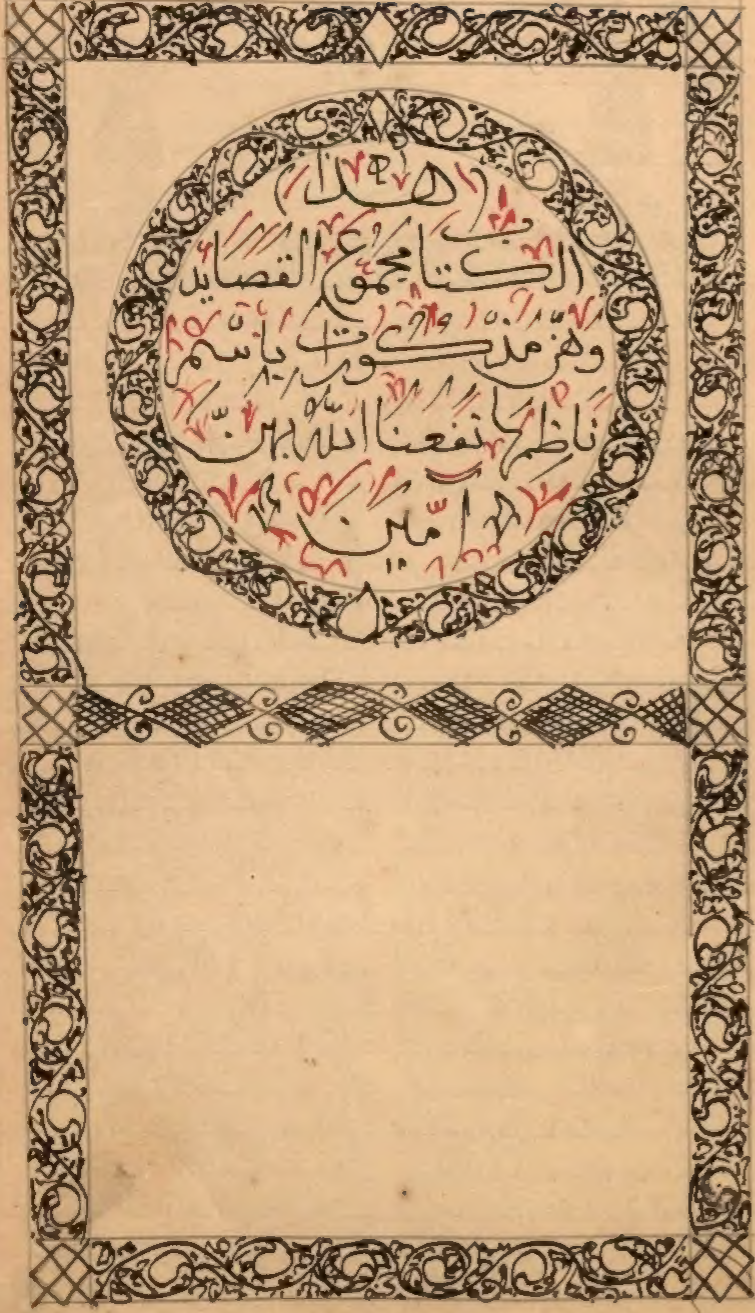 (هذا)
الكتاب مجموع القصايد
وهن مذكورات باسم
ناظمها نفعنا الله بهنّ
آمين